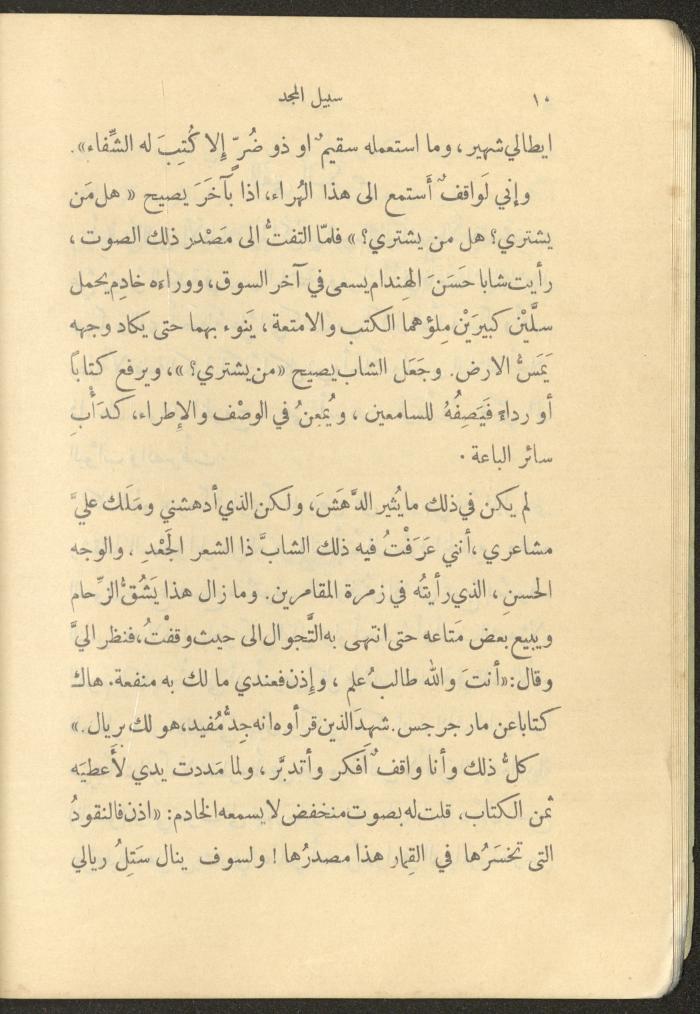 ١٠ سبيل المجد
ايطالي شهير ، وما استعمله سقيمٌ او ذو ضُرٍّ إلا كُتِبَ له الشِّفاء» .
وإني لَواقفٌ أَستمع الى هذا الهُراء، اذا بآخَرَ يصيح « هل مَن
يشتري؟ هل من يشتري؟ » فلمّا التفتُّ الى مَصْدر ذلك الصوت ،
رأيت شابا حَسَنَ الهِندام يسعى في آخر السوق، ووراءه خادِم يحمل
سلَّيْن كبيرَيْن مِلؤهما الكتب والامتعة ، يَنوء بهما حتى يكاد وجهه
يَمَسُّ الارض . وجَعَل الشاب يصيح «من يشتري؟ » ، ويرفع كتابًا
أو رداءً فَيَصِفُهُ للسامعين ، ويُمعِنُ في الوصْف والإطراء، كدَأْبِ
سائر الباعة .
لم يكن في ذلك ما يُثير الدَّهَشَ ، ولكن الذي أدهشني ومَلَك عليَّ
مشاعري ، أنني عَرَفْتُ فيه ذلك الشابَّ ذا الشعر الجَعْدِ ، والوجه
الحسنِ ، الذي رأيتُه في زمرة المقامرين . وما زال هذا يَشُقُّ الزِّحام
ويبيع بعض مَتاعه حتى انتهى به التَّجوال الى حيث وقفْتُ، فنظر اليَّ
وقال : «أنتَ والله طالبُ علم ، وإذن فعندي ما لك به منفعة . هاك
كتابا عن مار جرجس . شهِدَ الذين قرأوه انه جِدُّ مُفيد، هو لك بريال .»
كلُّ ذلك وأنا واقفٌ أفكر وأتدبَّر ، ولما مَددت يدي لأَعطيَه
ثمن الكتاب، قلت له بصوت منخفض لا يسمعه الخادم : «اذن فالنقودُ
التى تخسَرُها في القِمار هذا مصدرُها ! ولسوف ينال سَتِلُ ريالي